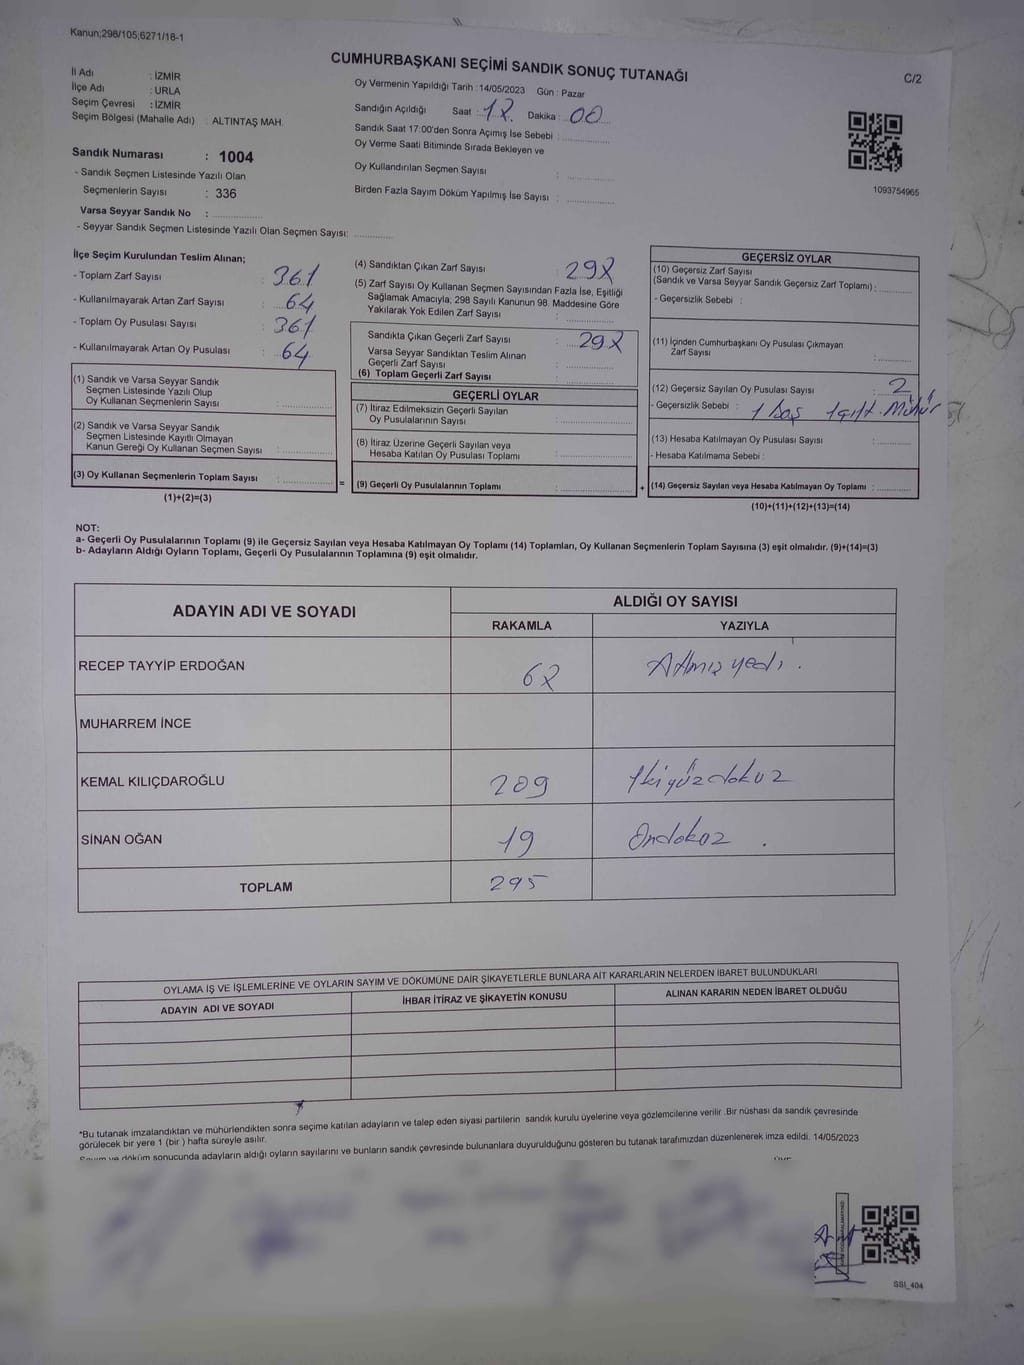 Kanun;298/105;6271/18-1
CUMHURBAŞKANI SEÇİMİ SANDIK SONUÇ TUTANAĞI
C/2
İl Adı : İZMİR
İlçe Adı : URLA
Seçim Çevresi : İZMİR
Seçim Bölgesi (Mahalle Adı) : ALTINTAŞ MAH.
Sandık Numarası : 1004
- Sandık Seçmen Listesinde Yazılı Olan
Seçmenlerin Sayısı : 336
Varsa Seyyar Sandık No :
- Seyyar Sandık Seçmen Listesinde Yazılı Olan Seçmen Sayısı:
Oy Vermenin Yapıldığı Tarih : 14/05/2023 Gün : Pazar
Sandığın Açıldığı Saat : 17. Dakika : 00
Sandık Saat 17:00'den Sonra Açımış İse Sebebi :
Oy Verme Saati Bitiminde Sırada Bekleyen ve
Oy Kullandırılan Seçmen Sayısı :
Birden Fazla Sayım Döküm Yapılmış İse Sayısı :
1093754965
İlçe Seçim Kurulundan Teslim Alınan;
- Toplam Zarf Sayısı : 361
- Kullanılmayarak Artan Zarf Sayısı : 64
- Toplam Oy Pusulası Sayısı : 361
- Kullanılmayarak Artan Oy Pusulası : 64
(1) Sandık ve Varsa Seyyar Sandık
Seçmen Listesinde Yazılı Olup
Oy Kullanan Seçmenlerin Sayısı :
(2) Sandık ve Varsa Seyyar Sandık
Seçmen Listesinde Kayıtlı Olmayan
Kanun Gereği Oy Kullanan Seçmen Sayısı :
(3) Oy Kullanan Seçmenlerin Toplam Sayısı :
(1)+(2)=(3)
=
(4) Sandıktan Çıkan Zarf Sayısı : 297
(5) Zarf Sayısı Oy Kullanan Seçmen Sayısından Fazla İse, Eşitliği
Sağlamak Amacıyla, 298 Sayılı Kanunun 98. Maddesine Göre
Yakılarak Yok Edilen Zarf Sayısı :
Sandıkta Çıkan Geçerli Zarf Sayısı : 297
Varsa Seyyar Sandıktan Teslim Alınan
Geçerli Zarf Sayısı :
(6) Toplam Geçerli Zarf Sayısı :
GEÇERLİ OYLAR
(7) İtiraz Edilmeksizin Geçerli Sayılan
Oy Pusulalarının Sayısı :
(8) İtiraz Üzerine Geçerli Sayılan veya
Hesaba Katılan Oy Pusulası Toplamı :
(9) Geçerli Oy Pusulalarının Toplamı :
+
GEÇERSİZ OYLAR
(10) Geçersiz Zarf Sayısı
(Sandık ve Varsa Seyyar Sandık Geçersiz Zarf Toplamı) :
- Geçersizlik Sebebi :
(11) İçinden Cumhurbaşkanı Oy Pusulası Çıkmayan
Zarf Sayısı :
(12) Geçersiz Sayılan Oy Pusulası Sayısı : 2
- Geçersizlik Sebebi : 1 Boş 1 çift Mühür
(13) Hesaba Katılmayan Oy Pusulası Sayısı :
- Hesaba Katılmama Sebebi :
(14) Geçersiz Sayılan veya Hesaba Katılmayan Oy Toplamı :
(10)+(11)+(12)+(13)=(14)
NOT:
a- Geçerli Oy Pusulalarının Toplamı (9) ile Geçersiz Sayılan veya Hesaba Katılmayan Oy Toplamı (14) Toplamları, Oy Kullanan Seçmenlerin Toplam Sayısına (3) eşit olmalıdır. (9)+(14)=(3)
b- Adayların Aldığı Oyların Toplamı, Geçerli Oy Pusulalarının Toplamına (9) eşit olmalıdır.
ADAYIN ADI VE SOYADI
ALDIĞI OY SAYISI
RAKAMLA YAZIYLA
RECEP TAYYİP ERDOĞAN 67 Atmış yedi.
MUHARREM İNCE
KEMAL KILIÇDAROĞLU 209 İkiyüzdokuz
SİNAN OĞAN 19 Ondokoz.
TOPLAM 295
OYLAMA İŞ VE İŞLEMLERİNE VE OYLARIN SAYIM VE DÖKÜMÜNE DAİR ŞİKAYETLERLE BUNLARA AİT KARARLARIN NELERDEN İBARET BULUNDUKLARI
ADAYIN ADI VE SOYADI İHBAR İTİRAZ VE ŞİKAYETİN KONUSU ALINAN KARARIN NEDEN İBARET OLDUĞU
*Bu tutanak imzalandıktan ve mühürlendikten sonra seçime katılan adayların ve talep eden siyasi partilerin sandık kurulu üyelerine veya gözlemcilerine verilir .Bir nüshası da sandık çevresinde
görülecek bir yere 1 (bir ) hafta süreyle asılır.
Sayım ve döküm sonucunda adayların aldığı oyların sayılarını ve bunların sandık çevresinde bulunanlara duyurulduğunu gösteren bu tutanak tarafımızdan düzenlenerek imza edildi. 14/05/2023
SSI_404